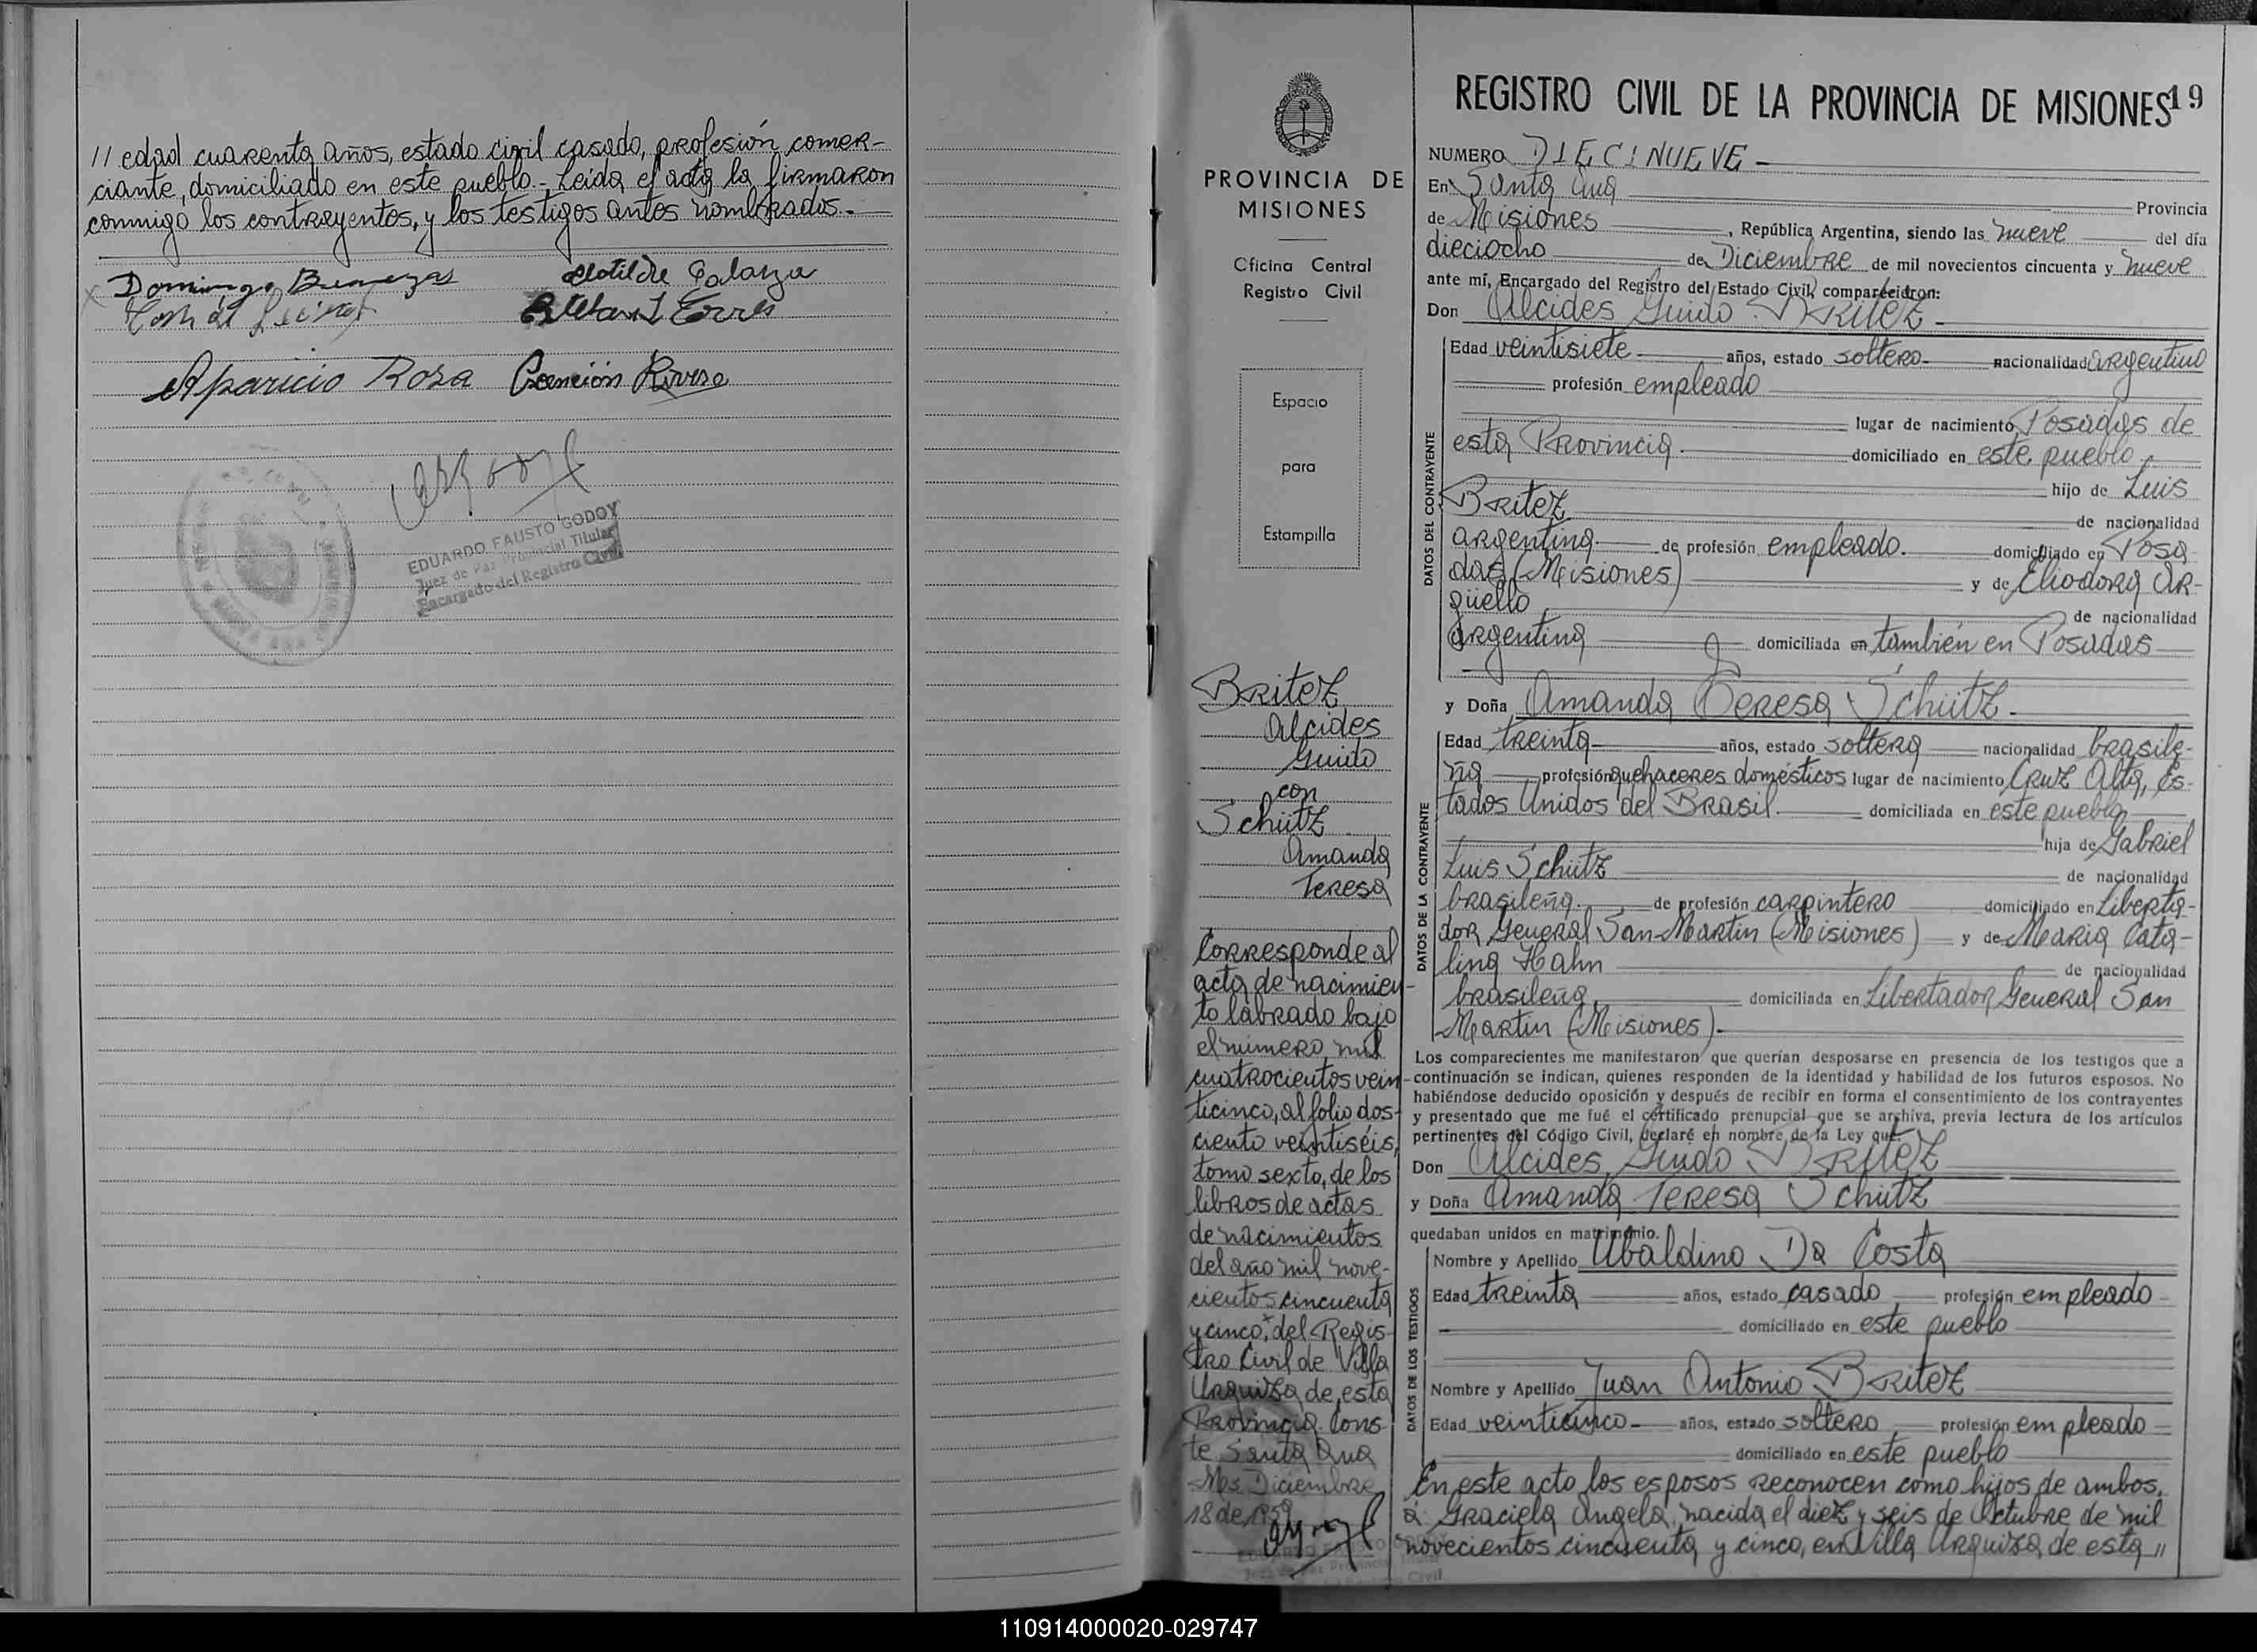 // edad cuarenta años, estado civil casado, profesión comer-
ciante, domiciliado en este pueblo.- Leída el acta la firmaron
conmigo los contrayentes, y los testigos antes nombrados.-
Domingo
Clotilde Galarza
Esteban Torres
Aparicio Rosa
EDUARDO FAUSTO GODOY
Juez de Paz Provincial Titular
Encargado del Registro Civil
PROVINCIA DE
MISIONES
Oficina Central
Registro Civil
Espacio
para
Estampilla
Britez
Alcides
Guido
con
Schütz
Amanda
Teresa
Corresponde al
acta de nacimien-
to labrado bajo
el número mil
cuatrocientos vein-
ticinco, al folio dos-
ciento veintiséis,
tomo sexto, de los
libros de actas
de nacimientos
del año mil nove-
cientos cincuenta
y cinco, del Regis-
tro Civil de Villa
Urquiza de esta
Provincia. Cons-
te Santa Ana
Mes Diciembre
18 de 1959
REGISTRO CIVIL DE LA PROVINCIA DE MISIONES 19
NUMERO DIECINUEVE -
En Santa Ana Provincia
de Misiones, República Argentina, siendo las nueve del día
dieciocho de Diciembre de mil novecientos cincuenta y nueve
ante mí, Encargado del Registro del Estado Civil, comparecieron:
Don Alcides Guido BRITEZ -
DATOS DEL CONTRAYENTE
Edad veintisiete años, estado soltero nacionalidad argentino
profesión empleado
lugar de nacimiento Posadas de
esta Provincia. domiciliado en este pueblo
hijo de Luis
Britez
de nacionalidad
argentina de profesión empleado. domiciliado en Posa
das (Misiones) y de Eliodora Ar-
güello
de nacionalidad
argentina domiciliada en también en Posadas
y Doña Amanda Teresa Schütz -
DATOS DE LA CONTRAYENTE
Edad treinta años, estado soltera nacionalidad brasile-
ña profesión quehaceres domésticos lugar de nacimiento Cruz Alta, Es-
tados Unidos del Brasil. domiciliada en este pueblo
hija de Gabriel
Luis Schütz
de nacionalidad
brasileña de profesión carpintero domiciliado en Liberta-
dor General San Martin (Misiones) y de Maria Cata-
lina Hahn
de nacionalidad
brasileña domiciliada en Libertador General San
Martin (Misiones).
Los comparecientes me manifestaron que querían desposarse en presencia de los testigos que a
continuación se indican, quienes responden de la identidad y habilidad de los futuros esposos. No
habiéndose deducido oposición y después de recibir en forma el consentimiento de los contrayentes
y presentado que me fué el certificado prenupcial que se archiva, previa lectura de los artículos
pertinentes del Código Civil, declaré en nombre de la Ley que:
Don Alcides Guido BRITEZ
y Doña Amanda Teresa Schütz
quedaban unidos en matrimonio.
DATOS DE LOS TESTIGOS
Nombre y Apellido Ubaldino Da Costa
Edad treinta años, estado casado profesión empleado
domiciliado en este pueblo
Nombre y Apellido Juan Antonio Britez
Edad veinticinco años, estado soltero profesión empleado
domiciliado en este pueblo
En este acto los esposos reconocen como hijos de ambos,
a Graciela Angela, nacida el diez y seis de Octubre de mil
novecientos cincuenta y cinco, en Villa Urquiza de esta //
110914000020-029747